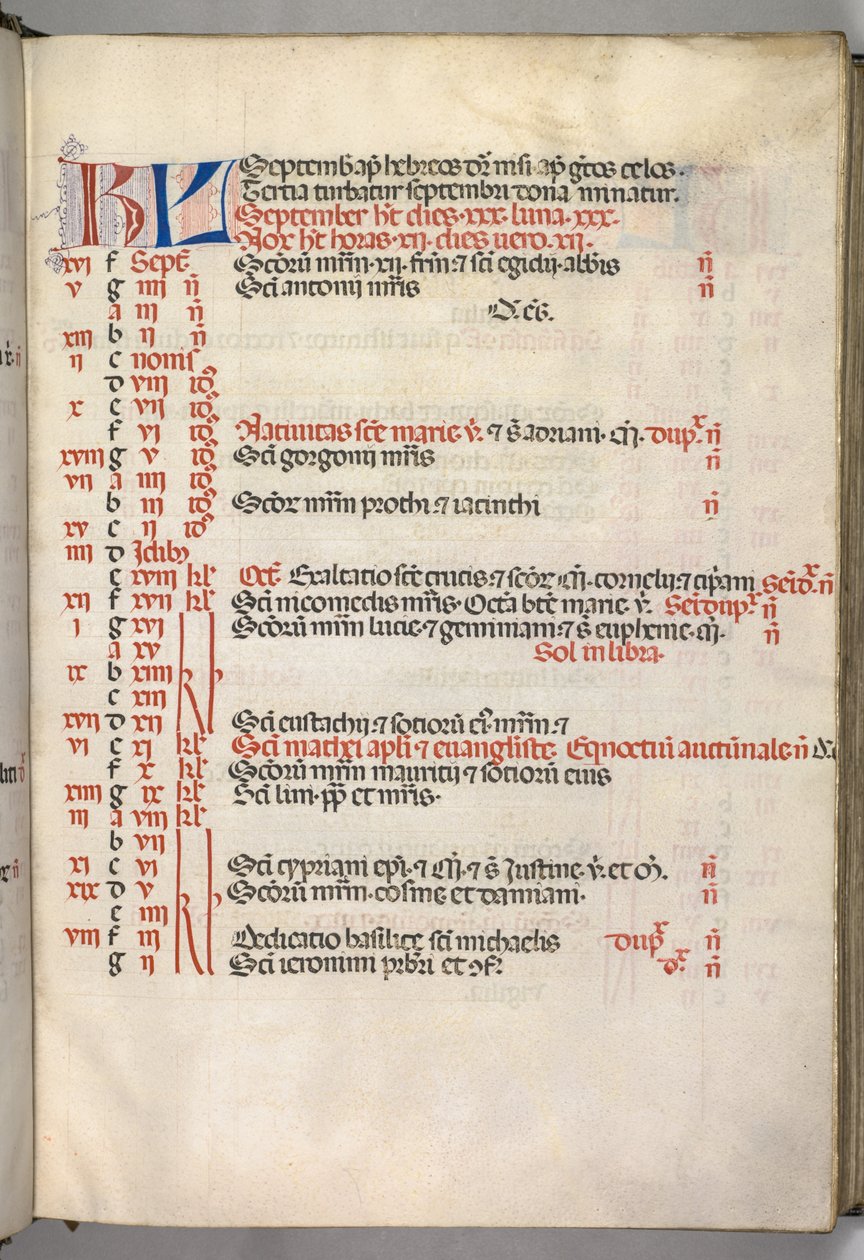 KL Septemb ap hebreos dr̄ nisi ap gr̄cos celos.
Tertia turbatur septembri dena minatur.
September ht dies xxx. luna. xxx.
Nox ht horas. xii. dies uero. xii.
xvi f Sept. Scōrū mrm̄. xii. frm̄. ⁊ sci egidij. abbis n̄
v g iiii n̄ Sci antonij mris n̄
a iii n̄
xiii b ii n̄
ii c nonis
d viii id9
x e vii id9
f vi id9 Natiuitas scē marie. v̄. ⁊ s̄ adriani. m̄. dupx n̄
xviii g v id9 Sci gorgonij mris n̄
vii a iiii id9
b iii id9 Scōr mrm̄ prothi. ⁊ iacinthi n̄
xv c ii id9
iiii d Idib9
e xviii kl Exaltatio scē crucis. ⁊ scōr m̄. cornelij. ⁊ cip̄ani n̄
xii f xvii kl Sci nicomedis mris. Octa btē marie. v̄. Semidupx n̄
i g xvi kl Scōrū mrm̄ lucie. ⁊ geminiani. ⁊ s̄ euphemie. m̄. n̄
a xv Sol in libra.
ix b xiiii
c xiii
xvii d xii Sci eustachij. ⁊ sociorū ei9. mrm̄. ⁊
vi e xi kl Sci mathei apli ⁊ euangliste. Eqnoctiū auctūnale n̄
f x kl Scōrū mrm̄ mauritij ⁊ sociorū eius
xiiii g ix kl Sci lini. pp̄ et mris.
iii a viii kl
b vii
xi c vi Sci cypriani epi. ⁊ m̄. ⁊ s̄ Justine. v̄. et m̄. n̄
xix d v Scōrū mrm̄. cosme et damiani. n̄
e iiii
viii f iii Dedicatio basilice sci michaelis dupx n̄
g ii Sci ieronimi prbri et ɔf. dx n̄